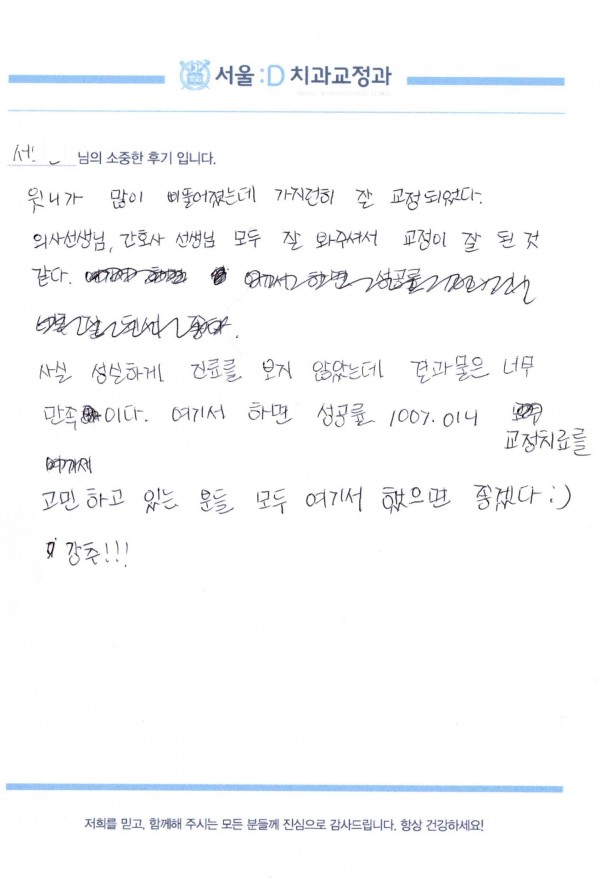 서울:D 치과교정과
서 님의 소중한 후기 입니다.
윗니가 많이 삐뚤어졌는데 가지런히 잘 교정되었다.
의사선생님, 간호사 선생님 모두 잘 봐주셔서 교정이 잘 된 것
같다. 여기서 하면 성공률
사실 성실하게 진료를 보지 않았는데 결과물은 너무
만족이다. 여기서 하면 성공률 100%이니
교정치료를
여기서
고민하고 있는 분들 모두 여기서 했으면 좋겠다 :)
강추!!!
저희를 믿고, 함께해 주시는 모든 분들께 진심으로 감사드립니다. 항상 건강하세요!